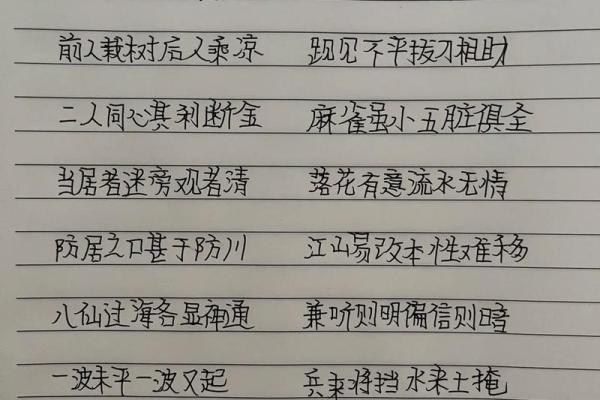 前人栽树后人乘凉 跑见不平拔刀相助
二人同心其利断金 麻雀虽小五脏俱全
当居者迷旁观者清 落花有意流水无情
防居之口甚于防川 江山易改本性难移
八仙过海各显神通 兼听则明偏信则暗
一波未平一波又起 兵来将挡水来土掩